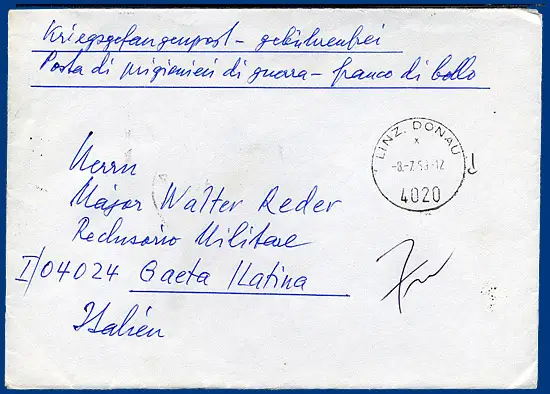 Kriegsgefangenpost - gebührenfrei
Posta di prigionieri di guerra - franco di bollo
LINZ. DONAU
4020
Herrn
Major Walter Reder
Reclusorio Militare
I/04024 Gaeta /Latina
Italien